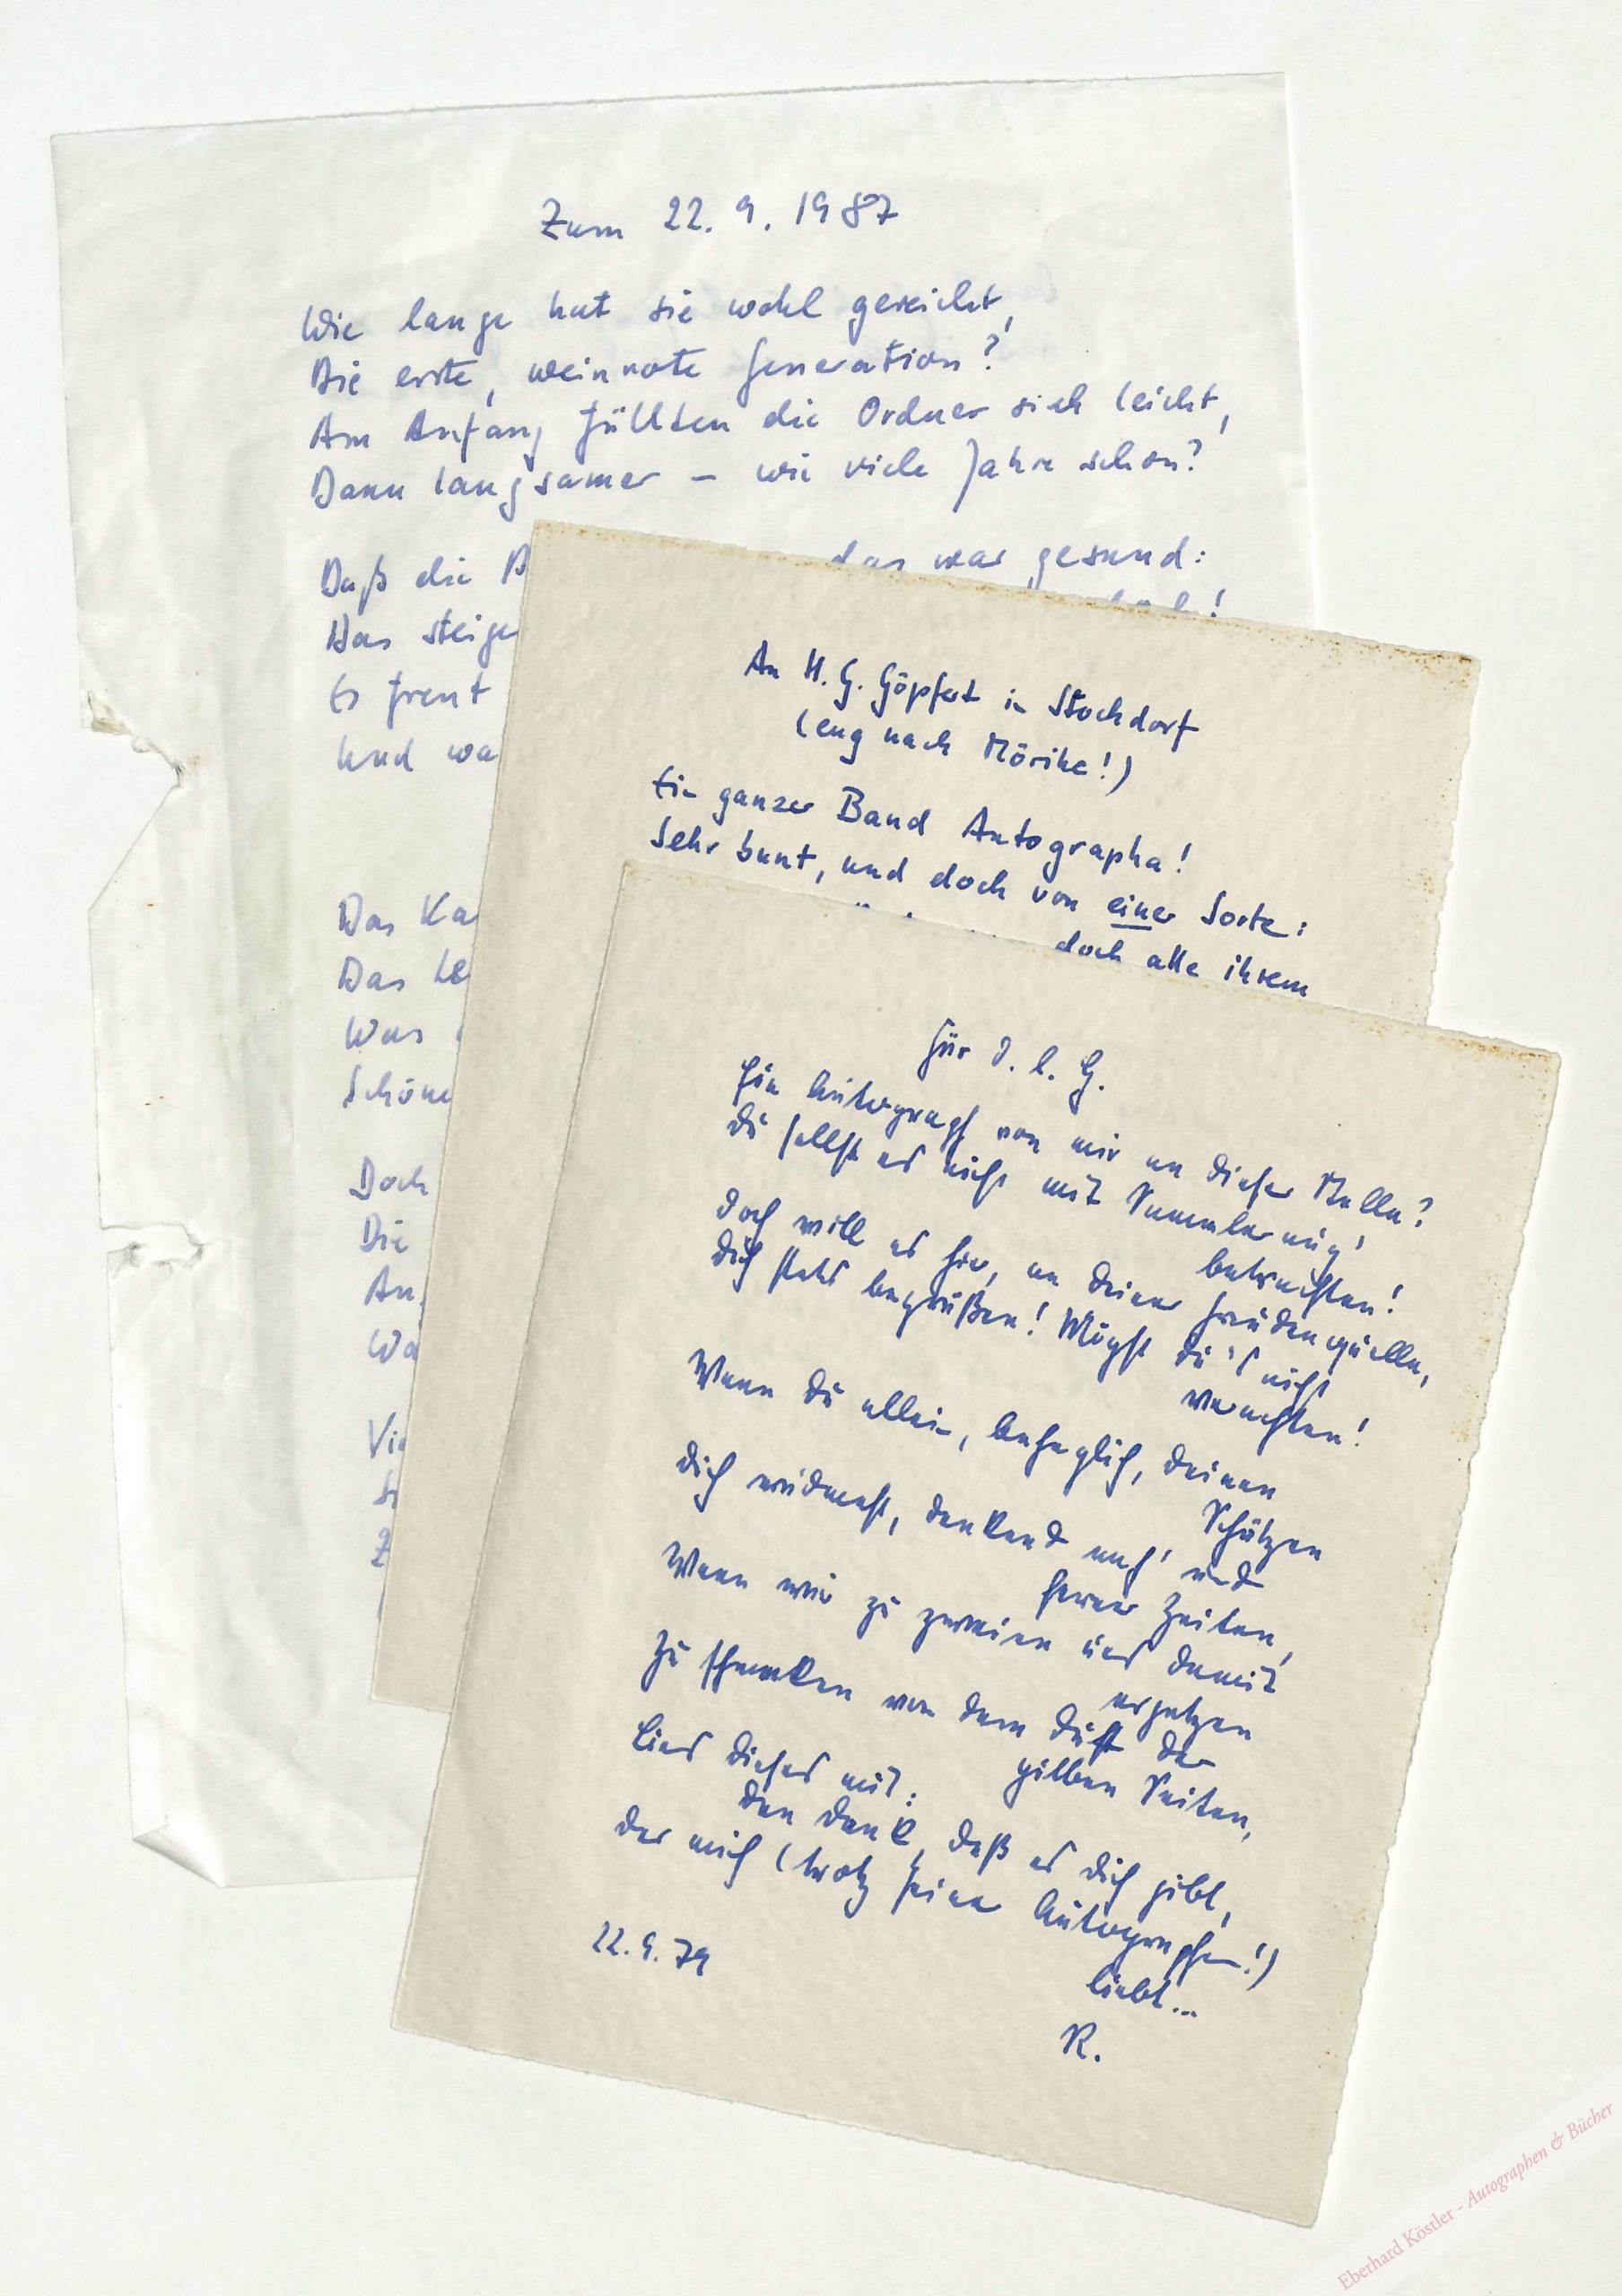 Zum 22. 9. 1987
Wie lange hat sie wohl gereicht,
Die erste, weinrote Generation?
Am Anfang füllten die Ordner sich leicht,
Dann langsamer – wie viele Jahre schon?
Daß die B
das war gesund:
Das steige
Es freut
Und wa
Das Ka
Das Le
Was
Schöne
Doch
Die
An
Wa
Vie
An H. G. Göpfert in Stockdorf
(eng nach Mörike!)
Ein ganzer Band Autographa!
Sehr bunt, und doch von einer Sorte:
doch alle ihrem
Für J. L. G.
Ein Autograph von mir an dieser Stelle?
Du sollst es nicht mit Sammleraug'
betrachten!
Doch will es hier, an Deiner Freudenquelle,
Dich stets begrüßen! Mögst Du's nicht
verachten!
Wenn Du allein, behaglich, Deinen
Schätzen
Dich widmest, denkend nah' und
ferner Zeiten,
Wenn wir zu zweien uns damit
ergetzen
Zu schmecken von dem Duft der
gilben Seiten,
Lies dieses mit:
Den Dank, daß es Dich gibt,
Der mich (trotz seiner Autographen!)
liebt...
22.9.79
R.
Eberhard Köstler - Autographen & Bücher